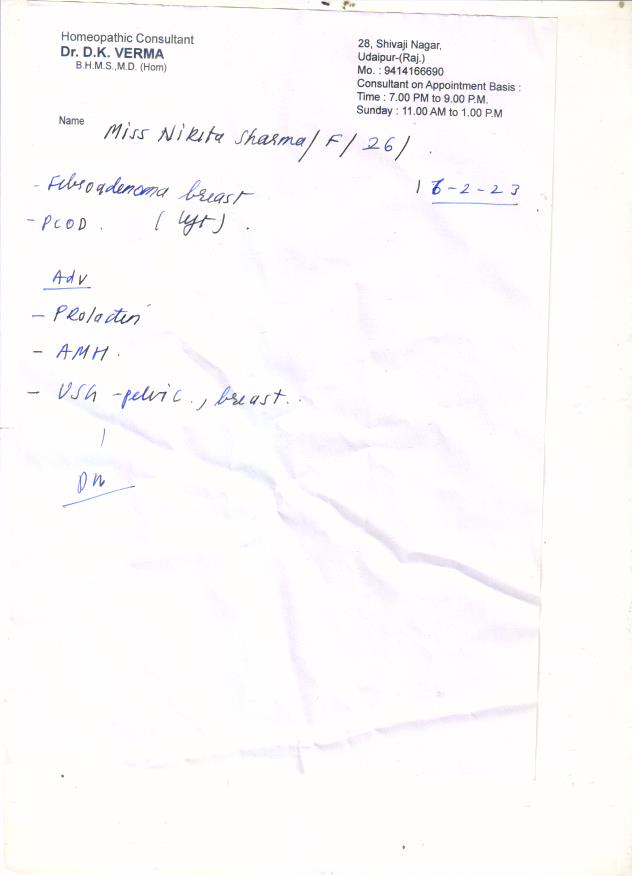 Homeopathic Consultant
Dr. D.K. VERMA
B.H.M.S.,M.D. (Hom)
28, Shivaji Nagar,
Udaipur-(Raj.)
Mo. : 9414166690
Consultant on Appointment Basis :
Time : 7.00 PM to 9.00 P.M.
Sunday : 11.00 AM to 1.00 P.M
Name Miss Nikita Sharma/ F/ 26/
16-2-23
- Fibroadenoma breast
- PCOD. (left).
Adv
- Prolactin
- AMH.
- USG - pelvic., breast..